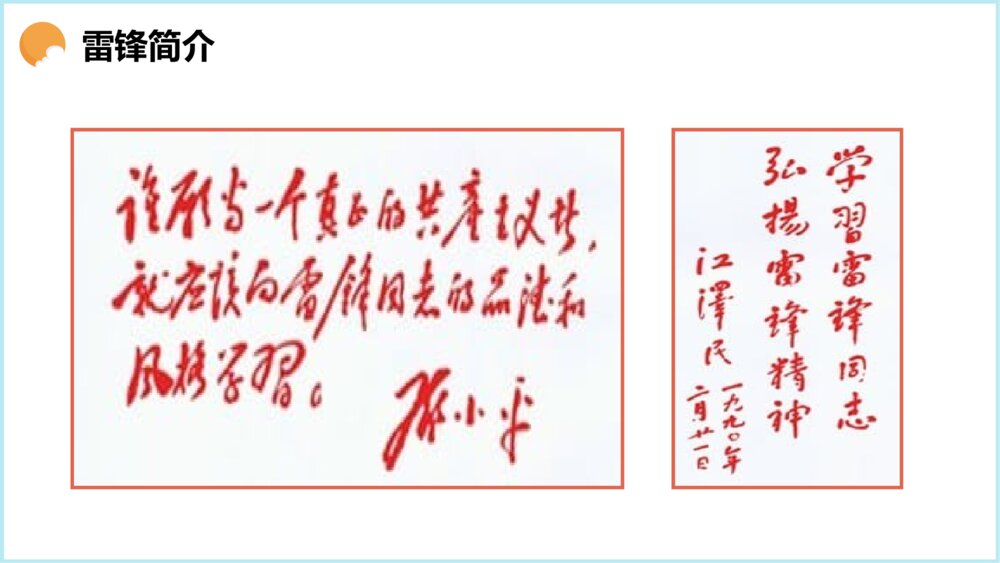 雷锋简介
谁愿当一个真正的共产主义者，
就应该向雷锋同志的品德和
风格学习。
邓小平
学習雷锋同志
弘揚雷锋精神
江澤民
一九九〇年
二月廿一日